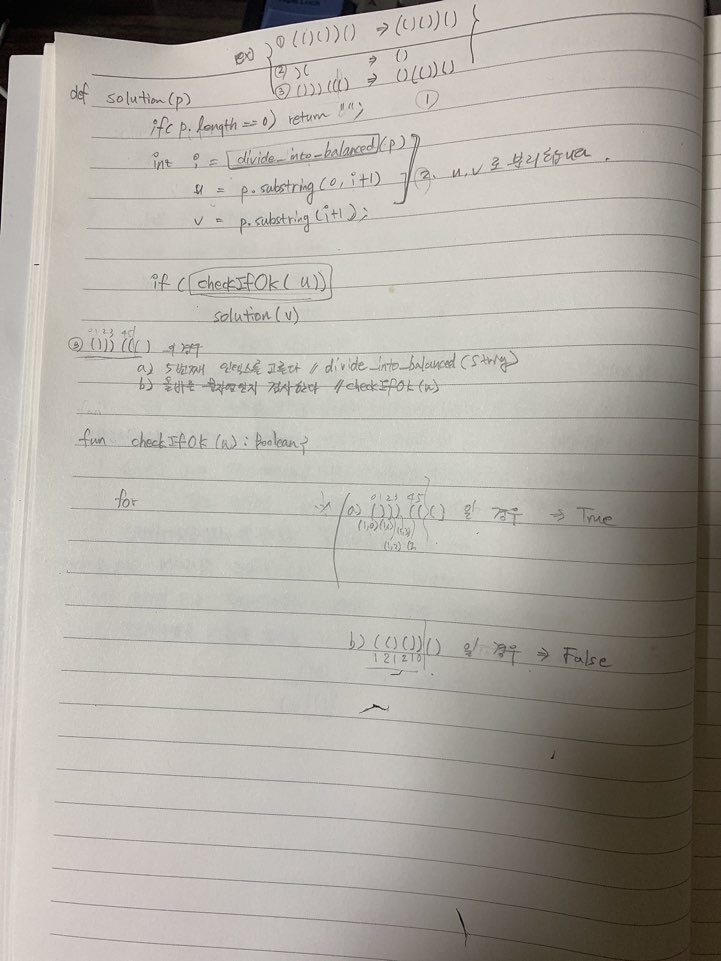 ex) ① (()())() ⇒ (()())()
② )( ⇒ ()
③ ()))((() ⇒ ()(())()
def solution(p) ①
if( p.length == 0) return "";
int i = divide_into_balanced(p)
u = p.substring(0, i+1) ②. u, v로 분리합니다.
v = p.substring(i+1);
if (checkIfOk(u))
solution(v)
0 1 2 3 4 5
③ ()))((() 의 경우
a) 5번째 인덱스를 고른다 // divide_into_balanced(String)
b) 올바른 문자열인지 검사한다 // checkIfOk(u)
fun checkIfOk(u): Boolean {
for
0 1 2 3 4 5
a) ()))((() 일 경우 ⇒ True
(1,0) (1,1)
b) (()())() 일 경우 ⇒ False
1 2 1 2 1 0